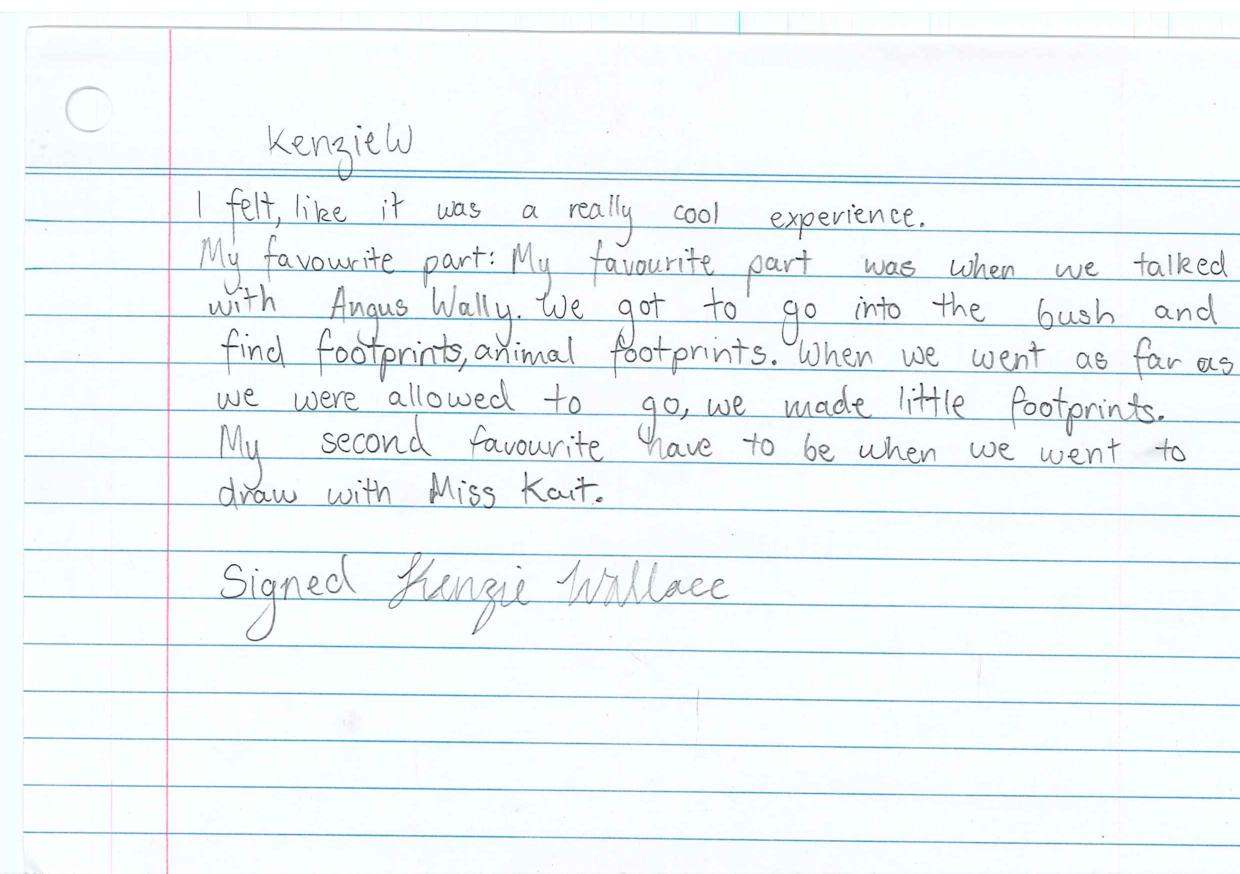 Kenzie W
I felt, like it was a really cool experience.
My favourite part: My favourite part was when we talked
with Angus Wally. We got to go into the bush and
find footprints, animal footprints. When we went as far as
we were allowed to go, we made little footprints.
My second favourite have to be when we went to
draw with Miss Kait.
Signed Kenzie Wallace